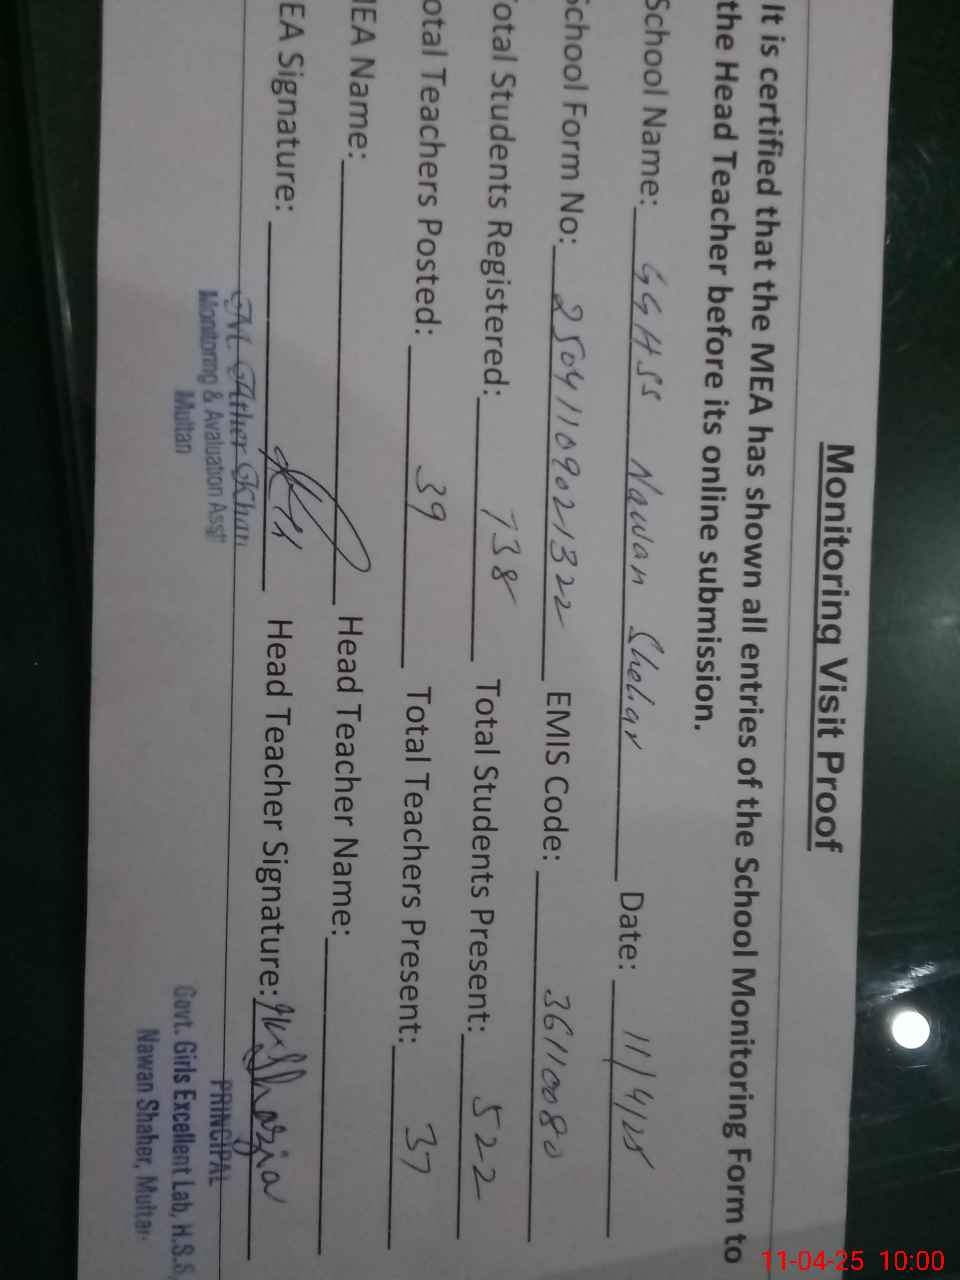 Monitoring Visit Proof
It is certified that the MEA has shown all entries of the School Monitoring Form to
the Head Teacher before its online submission.
School Name: GGHSS Nawan Shehar Date: 11/4/25
School Form No: 25041109021322 EMIS Code: 36110080
otal Students Registered: 738 Total Students Present: 522
otal Teachers Posted: 39 Total Teachers Present: 37
IEA Name: Head Teacher Name:
EA Signature: Head Teacher Signature: Shazia
M. Ather Khan
Monitoring & Avaluation Asst
Multan
PRINCIPAL
Govt. Girls Excellent Lab, H.S.S,
Nawan Shaher, Multan
11-04-25 10:00